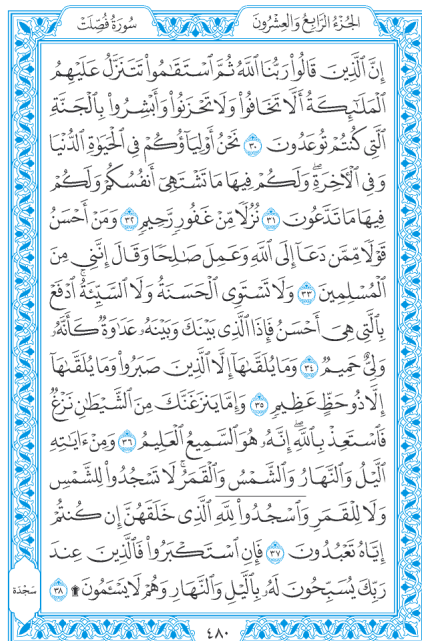 الجُزْءُ الرَّابِعُ وَالعِشْرُونَ
سُورَةُ فُصِّلَتْ
إِنَّ ٱلَّذِينَ قَالُوا۟ رَبُّنَا ٱللَّهُ ثُمَّ ٱسْتَقَٰمُوا۟ تَتَنَزَّلُ عَلَيْهِمُ
ٱلْمَلَٰٓئِكَةُ أَلَّا تَخَافُوا۟ وَلَا تَحْزَنُوا۟ وَأَبْشِرُوا۟ بِٱلْجَنَّةِ
ٱلَّتِى كُنتُمْ تُوعَدُونَ ٣٠ نَحْنُ أَوْلِيَآؤُكُمْ فِى ٱلْحَيَوٰةِ ٱلدُّنْيَا
وَفِى ٱلْـَٔاخِرَةِۖ وَلَكُمْ فِيهَا مَا تَشْتَهِىٓ أَنفُسُكُمْ وَلَكُمْ
فِيهَا مَا تَدَّعُونَ ٣١ نُزُلًا مِّنْ غَفُورٍ رَّحِيمٍ ٣٢ وَمَنْ أَحْسَنُ
قَوْلًا مِّمَّن دَعَآ إِلَى ٱللَّهِ وَعَمِلَ صَٰلِحًا وَقَالَ إِنَّنِى مِنَ
ٱلْمُسْلِمِينَ ٣٣ وَلَا تَسْتَوِى ٱلْحَسَنَةُ وَلَا ٱلسَّيِّئَةُۚ ٱدْفَعْ
بِٱلَّتِى هِىَ أَحْسَنُ فَإِذَا ٱلَّذِى بَيْنَكَ وَبَيْنَهُۥ عَدَٰوَةٌ كَأَنَّهُۥ
وَلِىٌّ حَمِيمٌ ٣٤ وَمَا يُلَقَّىٰهَآ إِلَّا ٱلَّذِينَ صَبَرُوا۟ وَمَا يُلَقَّىٰهَآ
إِلَّا ذُو حَظٍّ عَظِيمٍ ٣٥ وَإِمَّا يَنزَغَنَّكَ مِنَ ٱلشَّيْطَٰنِ نَزْغٌ
فَٱسْتَعِذْ بِٱللَّهِۖ إِنَّهُۥ هُوَ ٱلسَّمِيعُ ٱلْعَلِيمُ ٣٦ وَمِنْ ءَايَٰتِهِ
ٱلَّيْلُ وَٱلنَّهَارُ وَٱلشَّمْسُ وَٱلْقَمَرُۚ لَا تَسْجُدُوا۟ لِلشَّمْسِ
وَلَا لِلْقَمَرِ وَٱسْجُدُوا۟ لِلَّهِ ٱلَّذِى خَلَقَهُنَّ إِن كُنتُمْ
إِيَّاهُ تَعْبُدُونَ ٣٧ فَإِنِ ٱسْتَكْبَرُوا۟ فَٱلَّذِينَ عِندَ
رَبِّكَ يُسَبِّحُونَ لَهُۥ بِٱلَّيْلِ وَٱلنَّهَارِ وَهُمْ لَا يَسْـَٔمُونَ ۩ ٣٨
سَجْدَة
٤٨٠